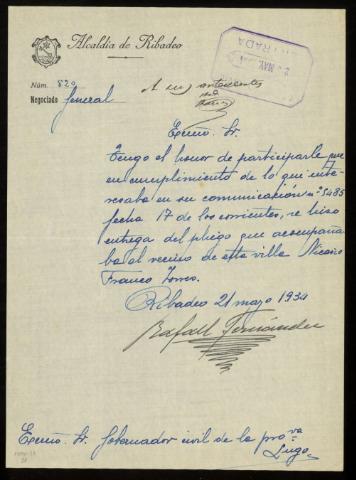 Alcaldía de Ribadeo
ENTRADA
MAY. 1934
Núm. 820
A sus antecedentes
Negociado General
Excmo. Sr
Tengo el honor de participarle que
en cumplimiento de lo que inte-
resaba en su comunicación nº 5485
fecha 17 de los corrientes, se hizo
entrega del pliego que acompaña
ba al vecino de esta villa Nicasio
Franco Torres.
Ribadeo 21 mayo 1934
Rafael Fernández
Excmo. Sr. Gobernador civil de la prova
Lugo